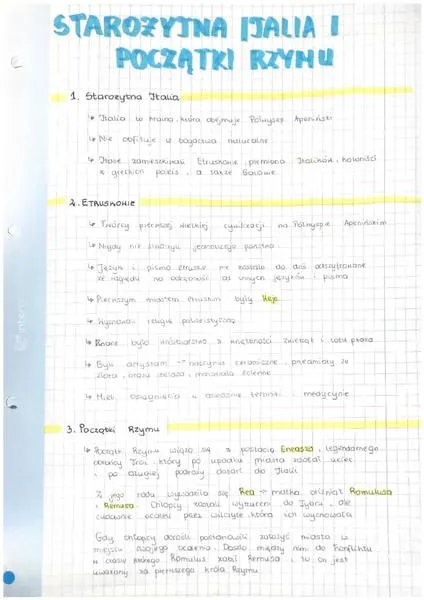 STAROŻYTNA ITALIA I
POCZĄTKI RZYMU
1. Starożytna Italia
↳ Italia to kraina, która obejmuje Półwysep Apeniński
↳ Nie obfituje w bogactwa naturalne
↳ Italię zamieszkiwali Etruskowie, plemiona Italików, koloniści
z greckich poleis, a także Galowie.
2. ETRUSKOWIE
↳ Twórcy pierwszej wielkiej cywilizacji na Półwyspie Apenińskim
↳ Nigdy nie stworzyli jednolitego państwa
↳ Język i pismo etrusków nie zostało do dziś odszyfrowane
ze względu na odrębność od innych języków i pisma
↳ Pierwszym miastem etruskim były Veje
↳ Wyznawali religię politeistyczną
↳ Znane było wróżbiarstwo z wnętrzności zwierząt i lotu ptaka
↳ Byli artystami → naczynia ceramiczne, przedmioty ze
złota, brązu, żelaza, malowidła ścienne
↳ Mieli osiągnięcia w dziedzinie techniki, medycynie
3. Początki Rzymu
↳ Początki Rzymu wiążą się z postacią Eneasza, legendarnego
obrońcy Troi, który po upadku miasta zdołał uciec
i po długiej podróży dotarł do Italii
Z jego rodu wywodziła się Rea → matka bliźniąt Romulusa
i Remusa. Chłopcy zostali wyrzuceni do Tybru, ale
cudownie ocaleni przez wilczycę, która ich wychowała
Gdy chłopcy dorośli postanowili założyć miasto w
miejscu swojego ocalenia. Doszło między nimi do konfliktu
w czasie którego Romulus zabił Remusa i to on jest
uważany za pierwszego króla Rzymu